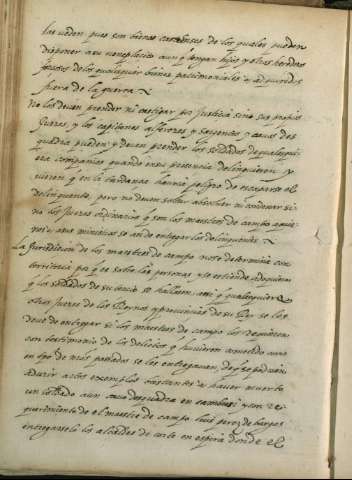 suceden pues son bienes castrenses de los quales pueden
disponer a su beneplacito aunq̃ tengan hijos y otros herederos
forçosos de los quales quier bienes patrimoniales o adquiridos
fuera de la guerra
No los deuen prender ni castigar por justicia sino sus propios
Jueces, y los capitanes alferezes y sargentos y cauos de es
quadra pueden y deuen prender los soldados de qualesqui
era compañias quando en su presencia delinquieren y
vieren q̃ en la tardança hauria peligro de escaparse el
delinquente, pero no deuen soltar absoluer ni condenar si
no los Jueces ordinarios q̃ son los maestros de campo a quie
nes y a sus ministros se an de entregar los delinquentes
La Jurisdicion de los maestros de campo no se determina con
territorio pa q̃ es sobre las personas y se estiende a doquiera
q̃ los soldados de su tercio se hallaren, ansi q̃ qualesquier
otros Jueces de los Reynos y prouincias de su Rey se los
deue de entregar si los maestros de campo los requieren
con testimonio de los delictos q̃ huuieren cometido como
en tpo de mis passados se les entregauan, de q̃ se podrian
aduzir artos exemplos bastantes a hauer muerto
un soldado a un cauo de esquadra en y con re
querimiento de el maestre de campo luis perez de bargas
entregarselo los alcaldes de corte en españa donde el